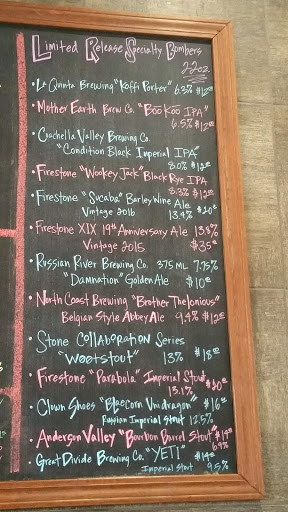 Limited Release Specialty Bombers
22oz.
• La Quinta Brewing "Koffi Porter" 6.3% $12⁰⁰
• Mother Earth Brew Co. "Boo Koo IPA"
6.5% $12⁰⁰
• Coachella Valley Brewing Co.
"Condition Black Imperial IPA"
8.0% $12⁰⁰
• Firestone "Wookey Jack" Black Rye IPA
8.3% $12⁰⁰
• Firestone "Sucaba" Barley Wine Ale
Vintage 2016 13.4% $20⁰⁰
• Firestone XIX 19th Anniversary Ale 13.8%
Vintage 2015 $35⁰⁰
• Russian River Brewing Co. 375 ML 7.75%
"Damnation" Golden Ale $10⁰⁰
• North Coast Brewing "Brother Thelonious"
Belgian Style Abbey Ale 9.4% $12⁰⁰
• Stone Collaboration Series
"Wootstout" 13% $18⁰⁰
• Firestone "Parabola" Imperial Stout
13.1% $20⁰⁰
• Clown Shoes "Blaecorn Unidragon" $16⁰⁰
Russian Imperial Stout 12.5%
• Anderson Valley "Bourbon Barrel Stout" $14⁰⁰
6.9%
• Great Divide Brewing Co. "YETI" $14⁰⁰
Imperial Stout 9.5%